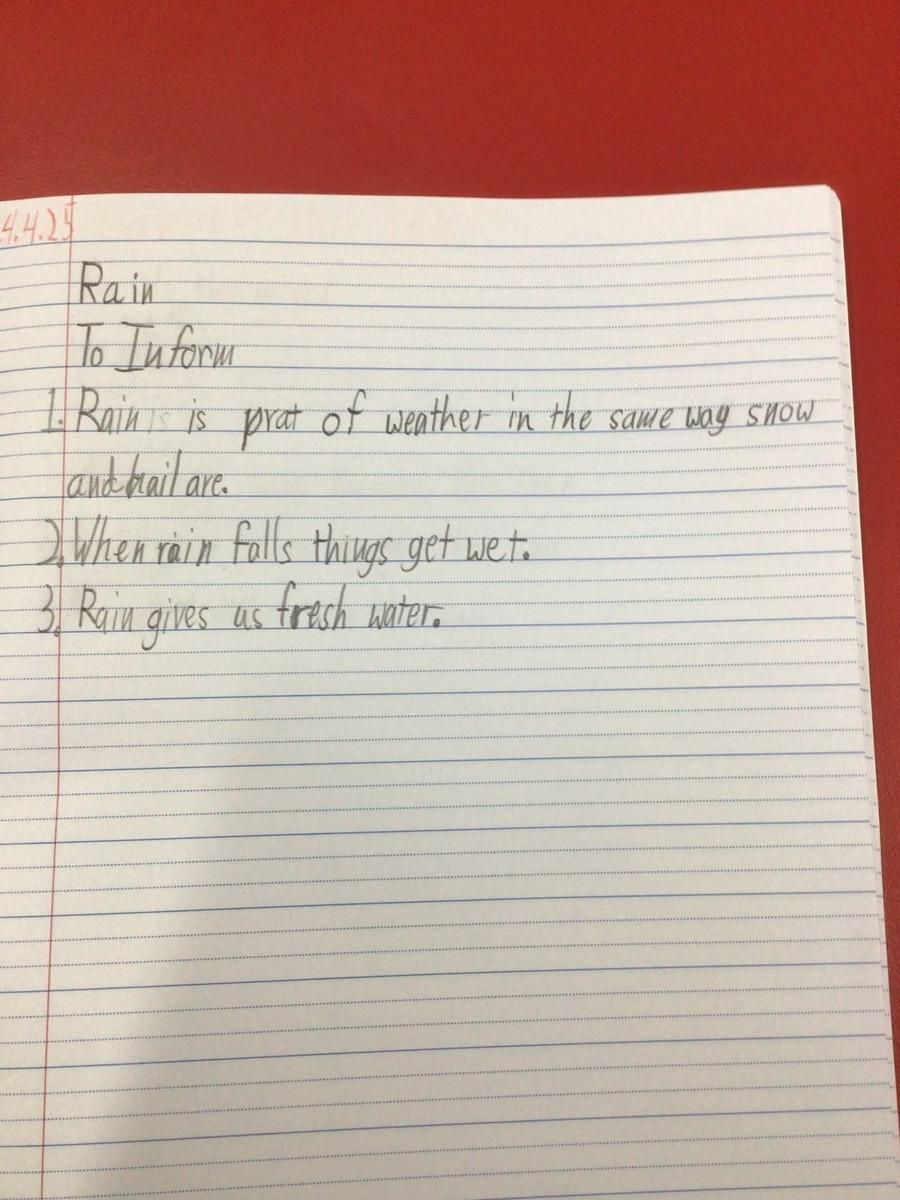 4.4.25
Rain
To Inform
1. Rain is is prat of weather in the same way snow
and hail are.
2. When rain falls things get wet.
3. Rain gives us fresh water.